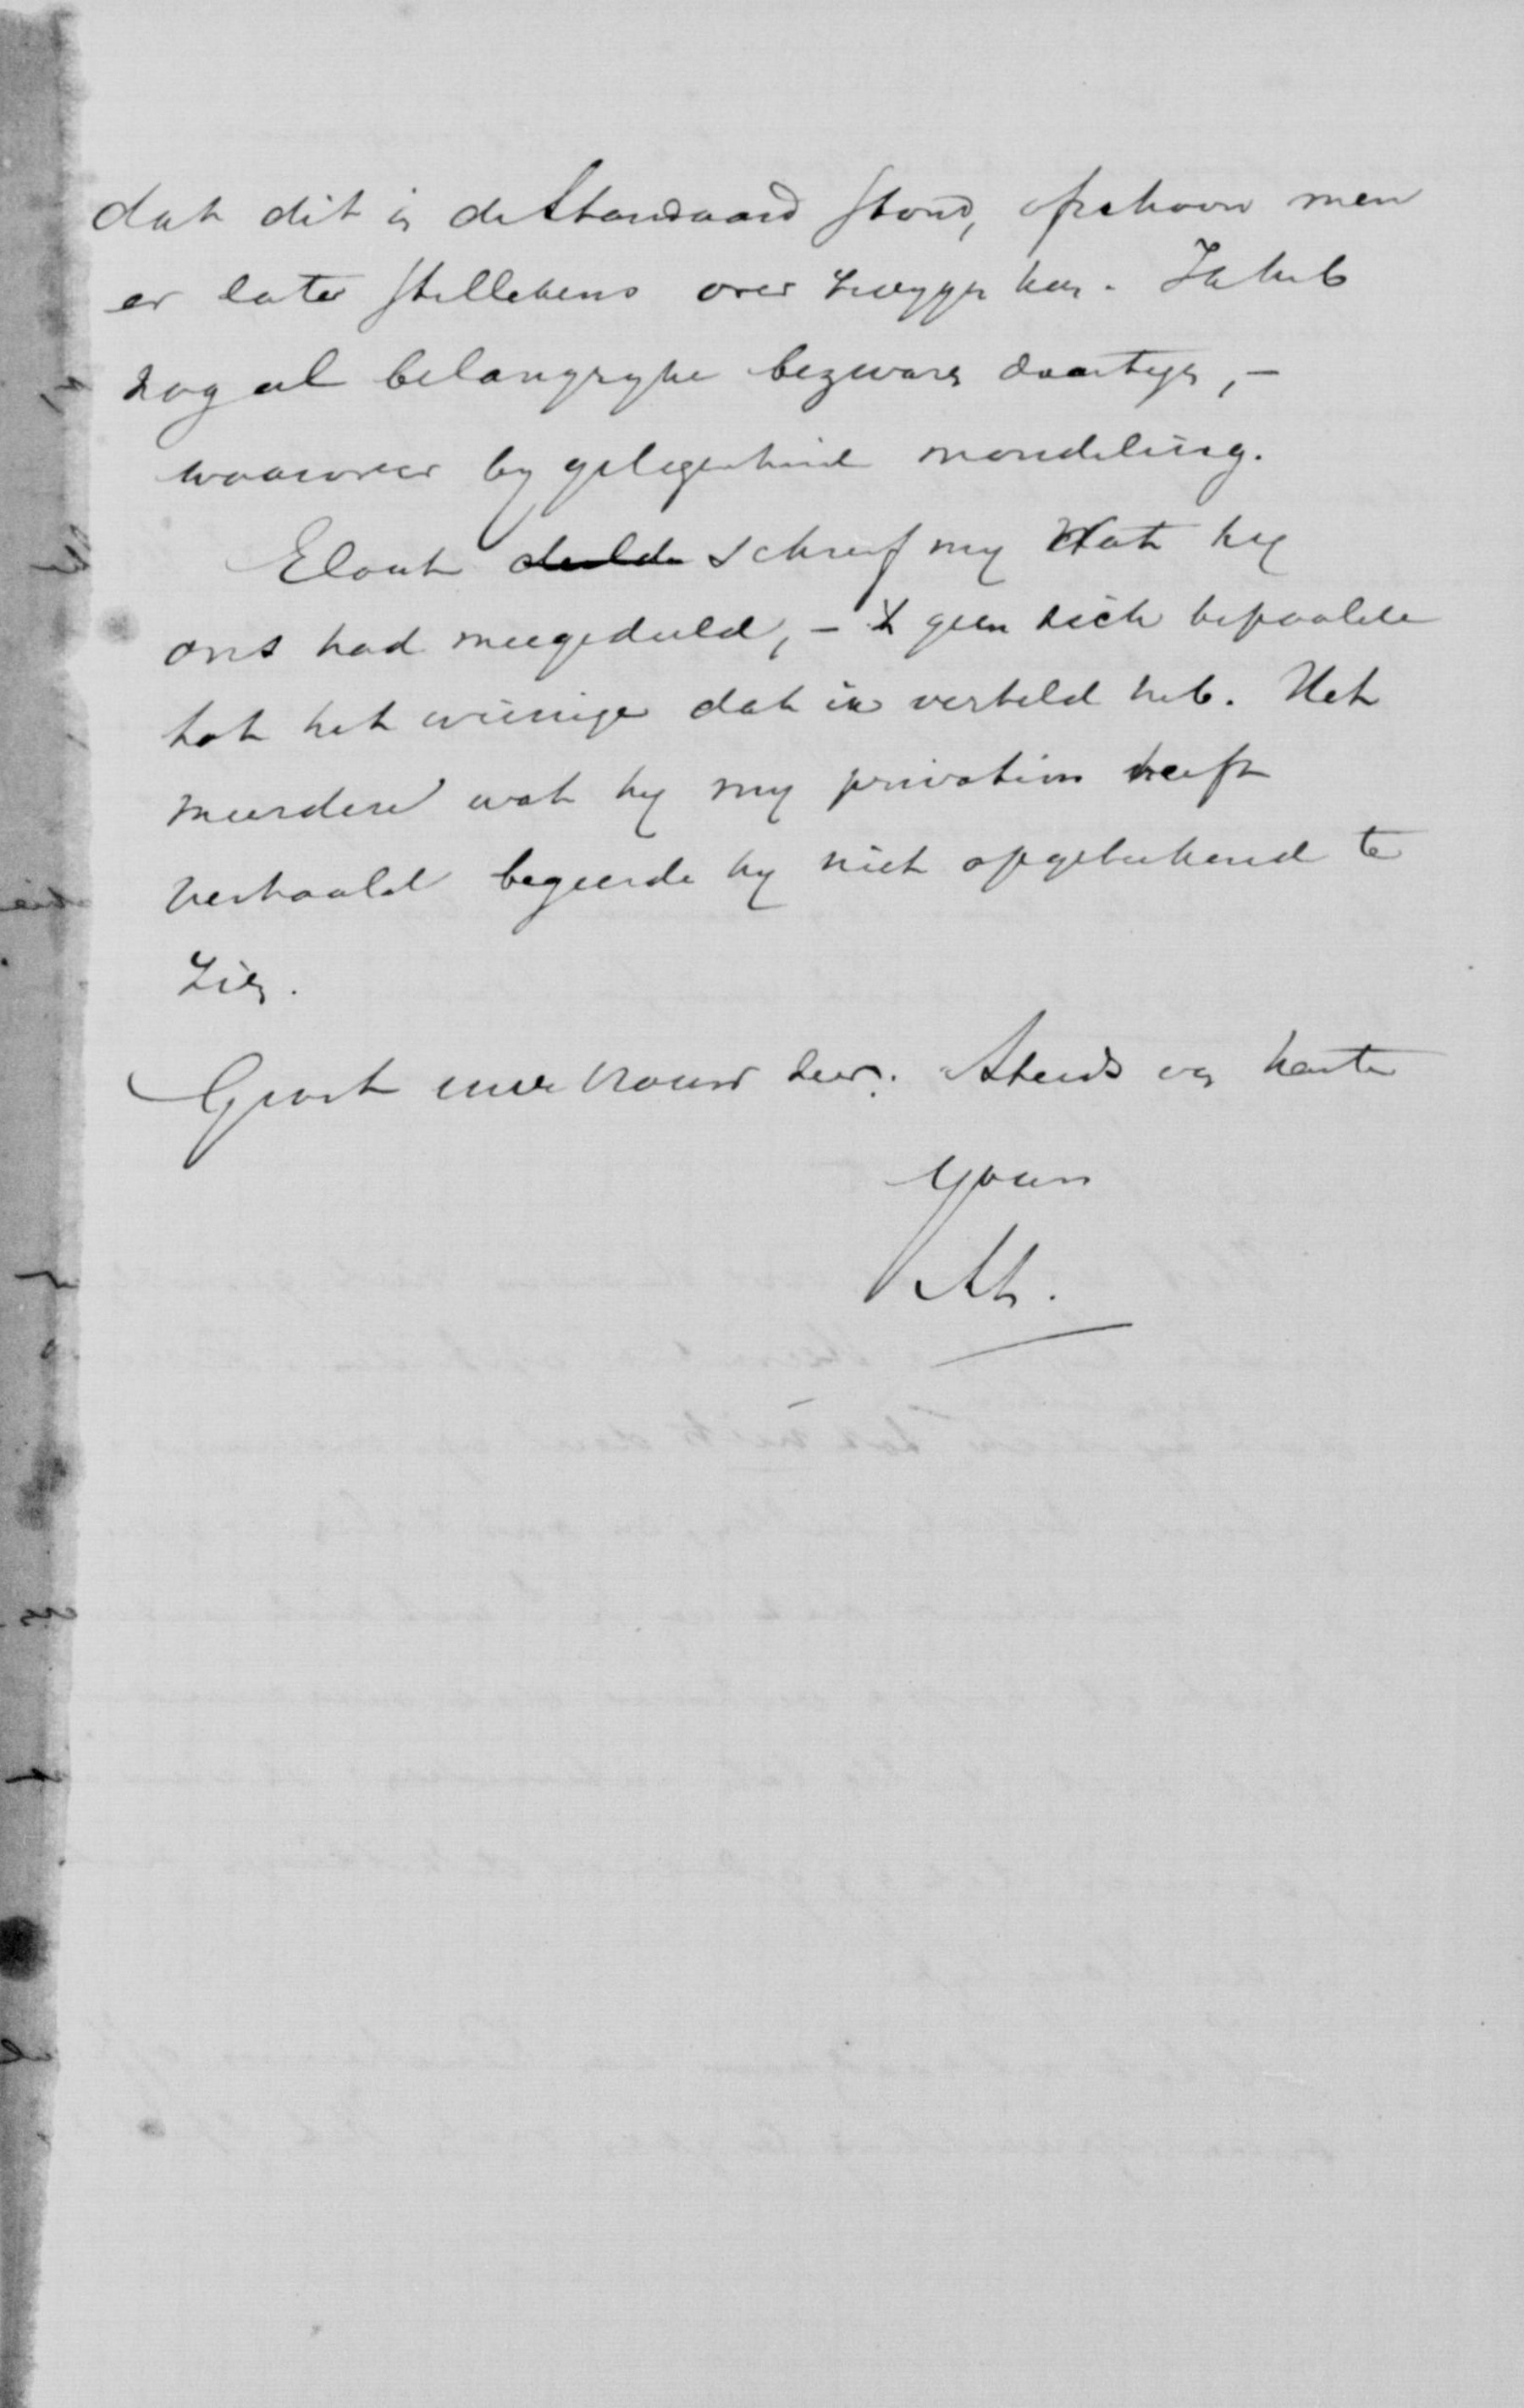 dat dit in de Standaard stond, ofschoon men
er later stillekens over zwijgen kan. Ik heb
nog al belangryke bezwaren daartegen, –
waarover by gelegenheid mondeling.
Elout deelde schreef my dat hy
ons had meegedeeld, – zich bepaalde
tot het weinige dat ik verteld heb. Het
meerdere wat hy my privatim heeft
verhaald begeerde hy niet opgeteekend te
zien.
Groet uwe vrouw zeer. Steeds van harte
yours